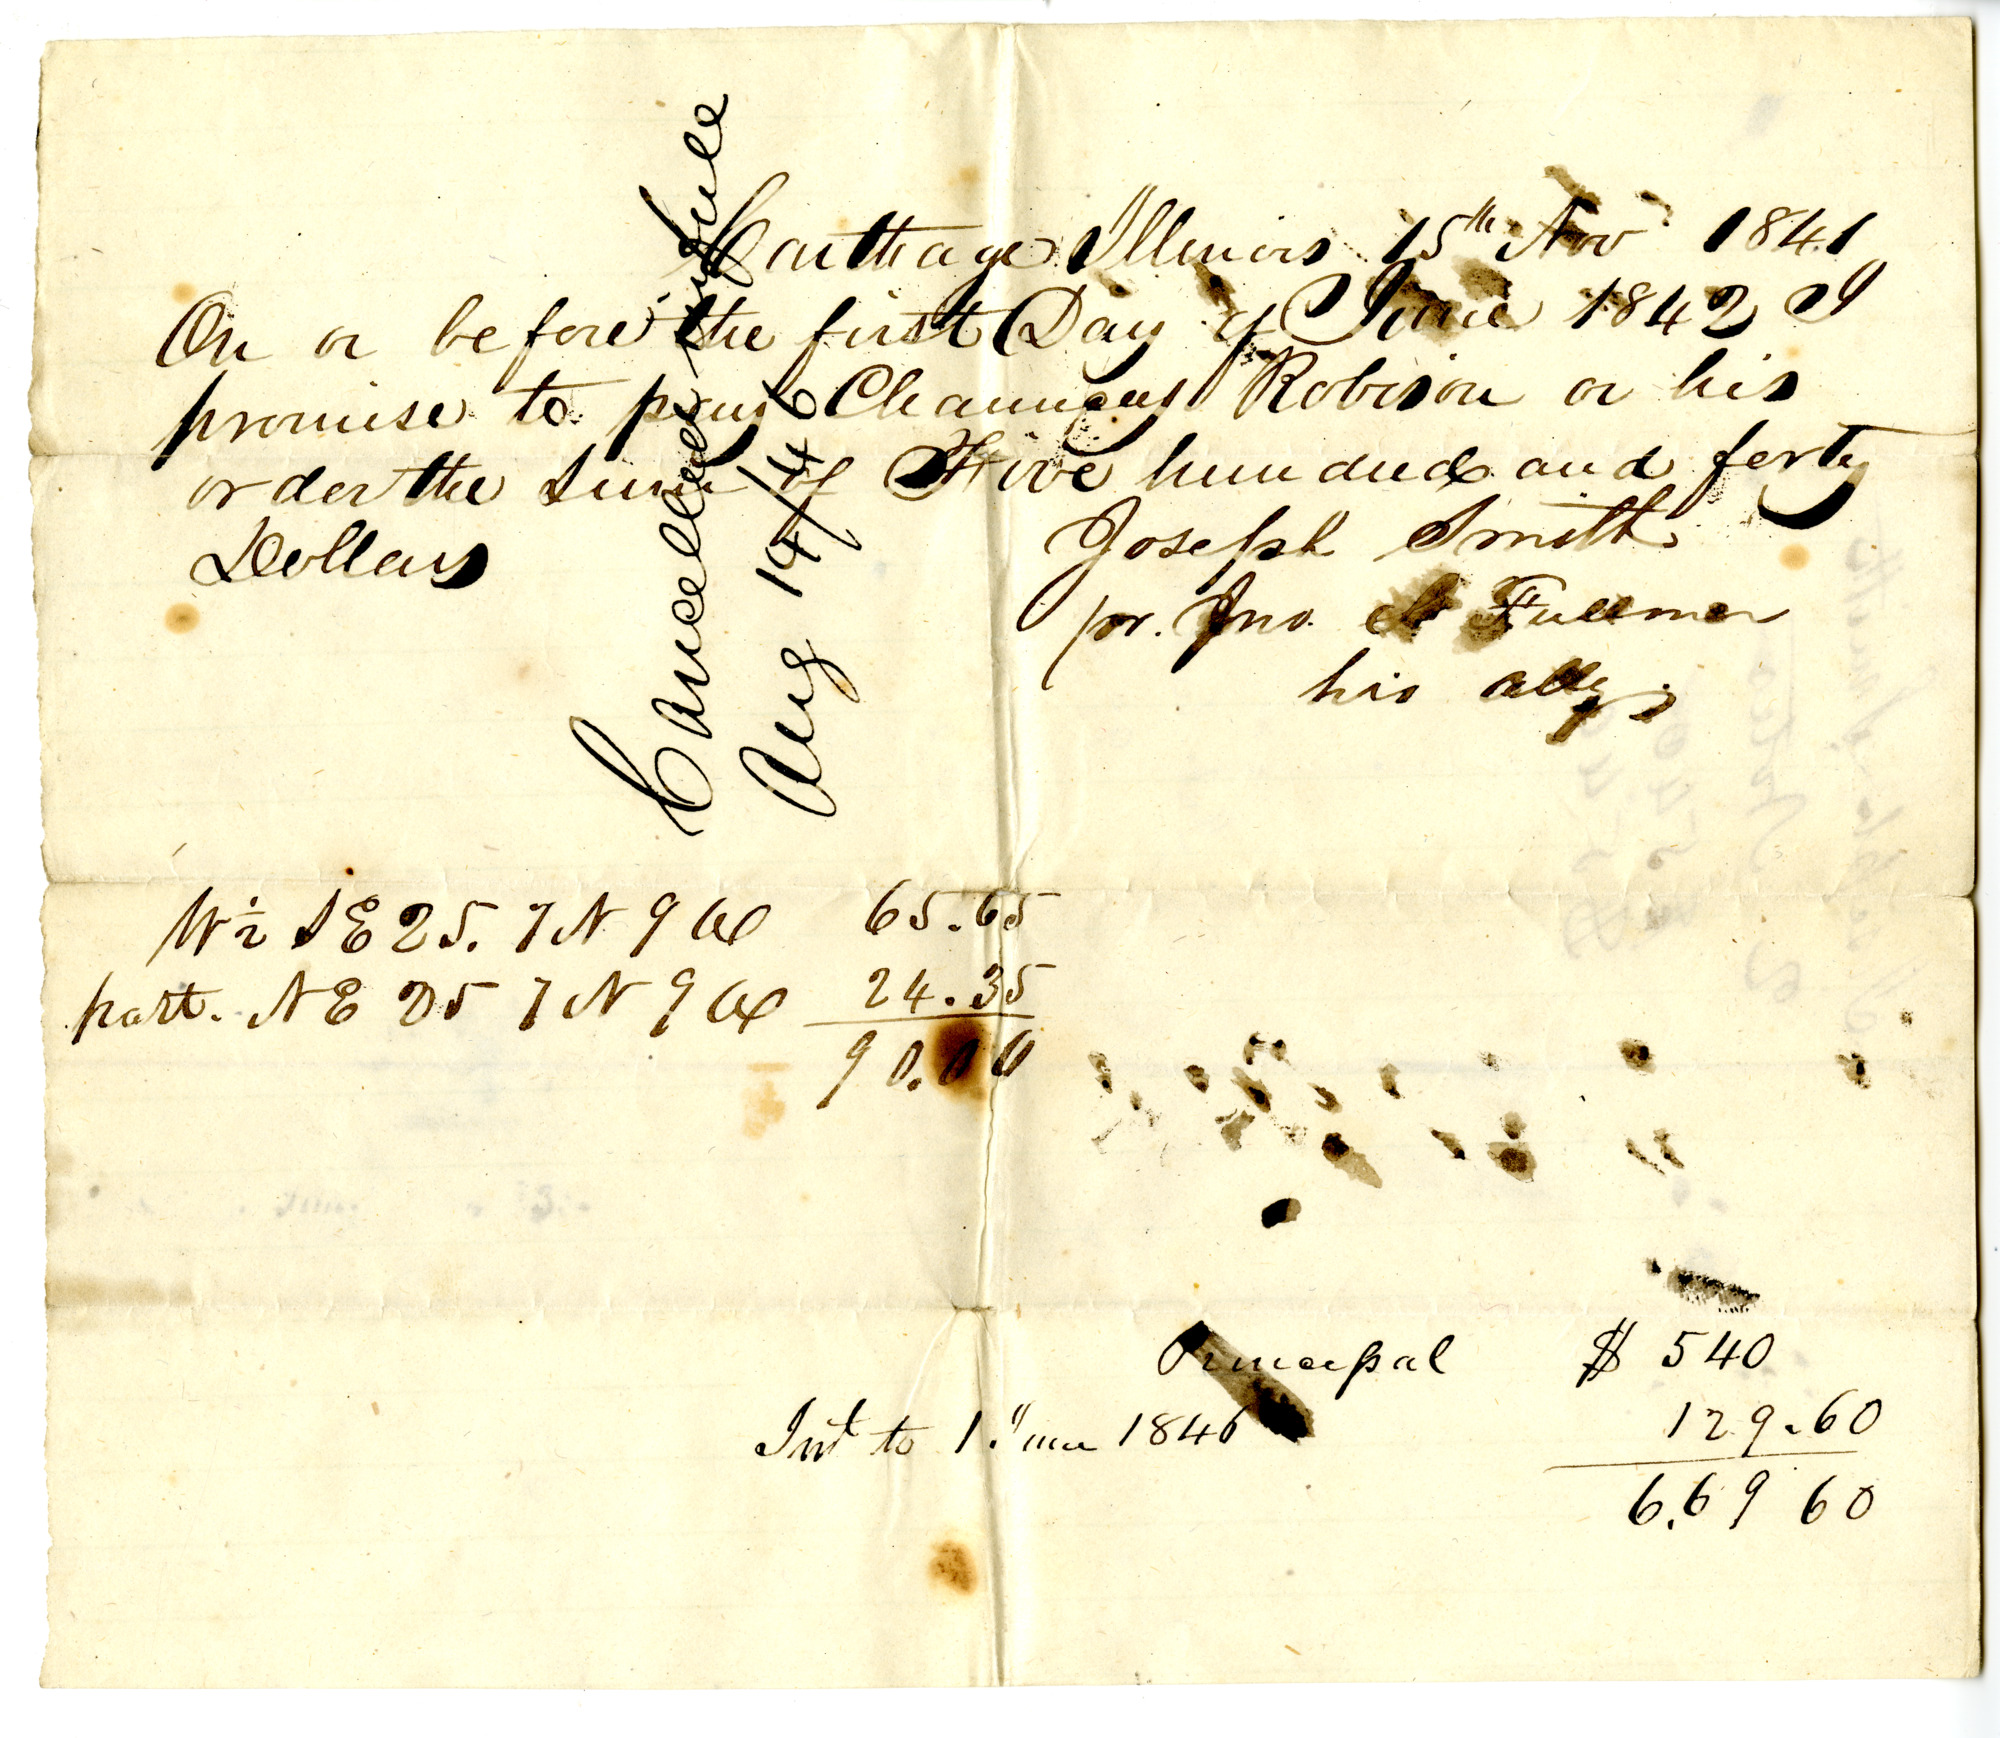 Carthage Illinois 15th Nov 1841
On or before the first Day of June 1842 I
promise to pay Chauncey Robison or his
order the Sum of Five hundred and forty
Dollars
Joseph Smith
pr. Jno. S Fullmer
his atty
Cancelled in full
Aug 14/46
W ½ S E 25. 7 N 9 W 65.65
part. N E 25 7 N 9 W 24.35
90.00
Principal $ 540
Int to 1. June 1846 129.60
6.69 60